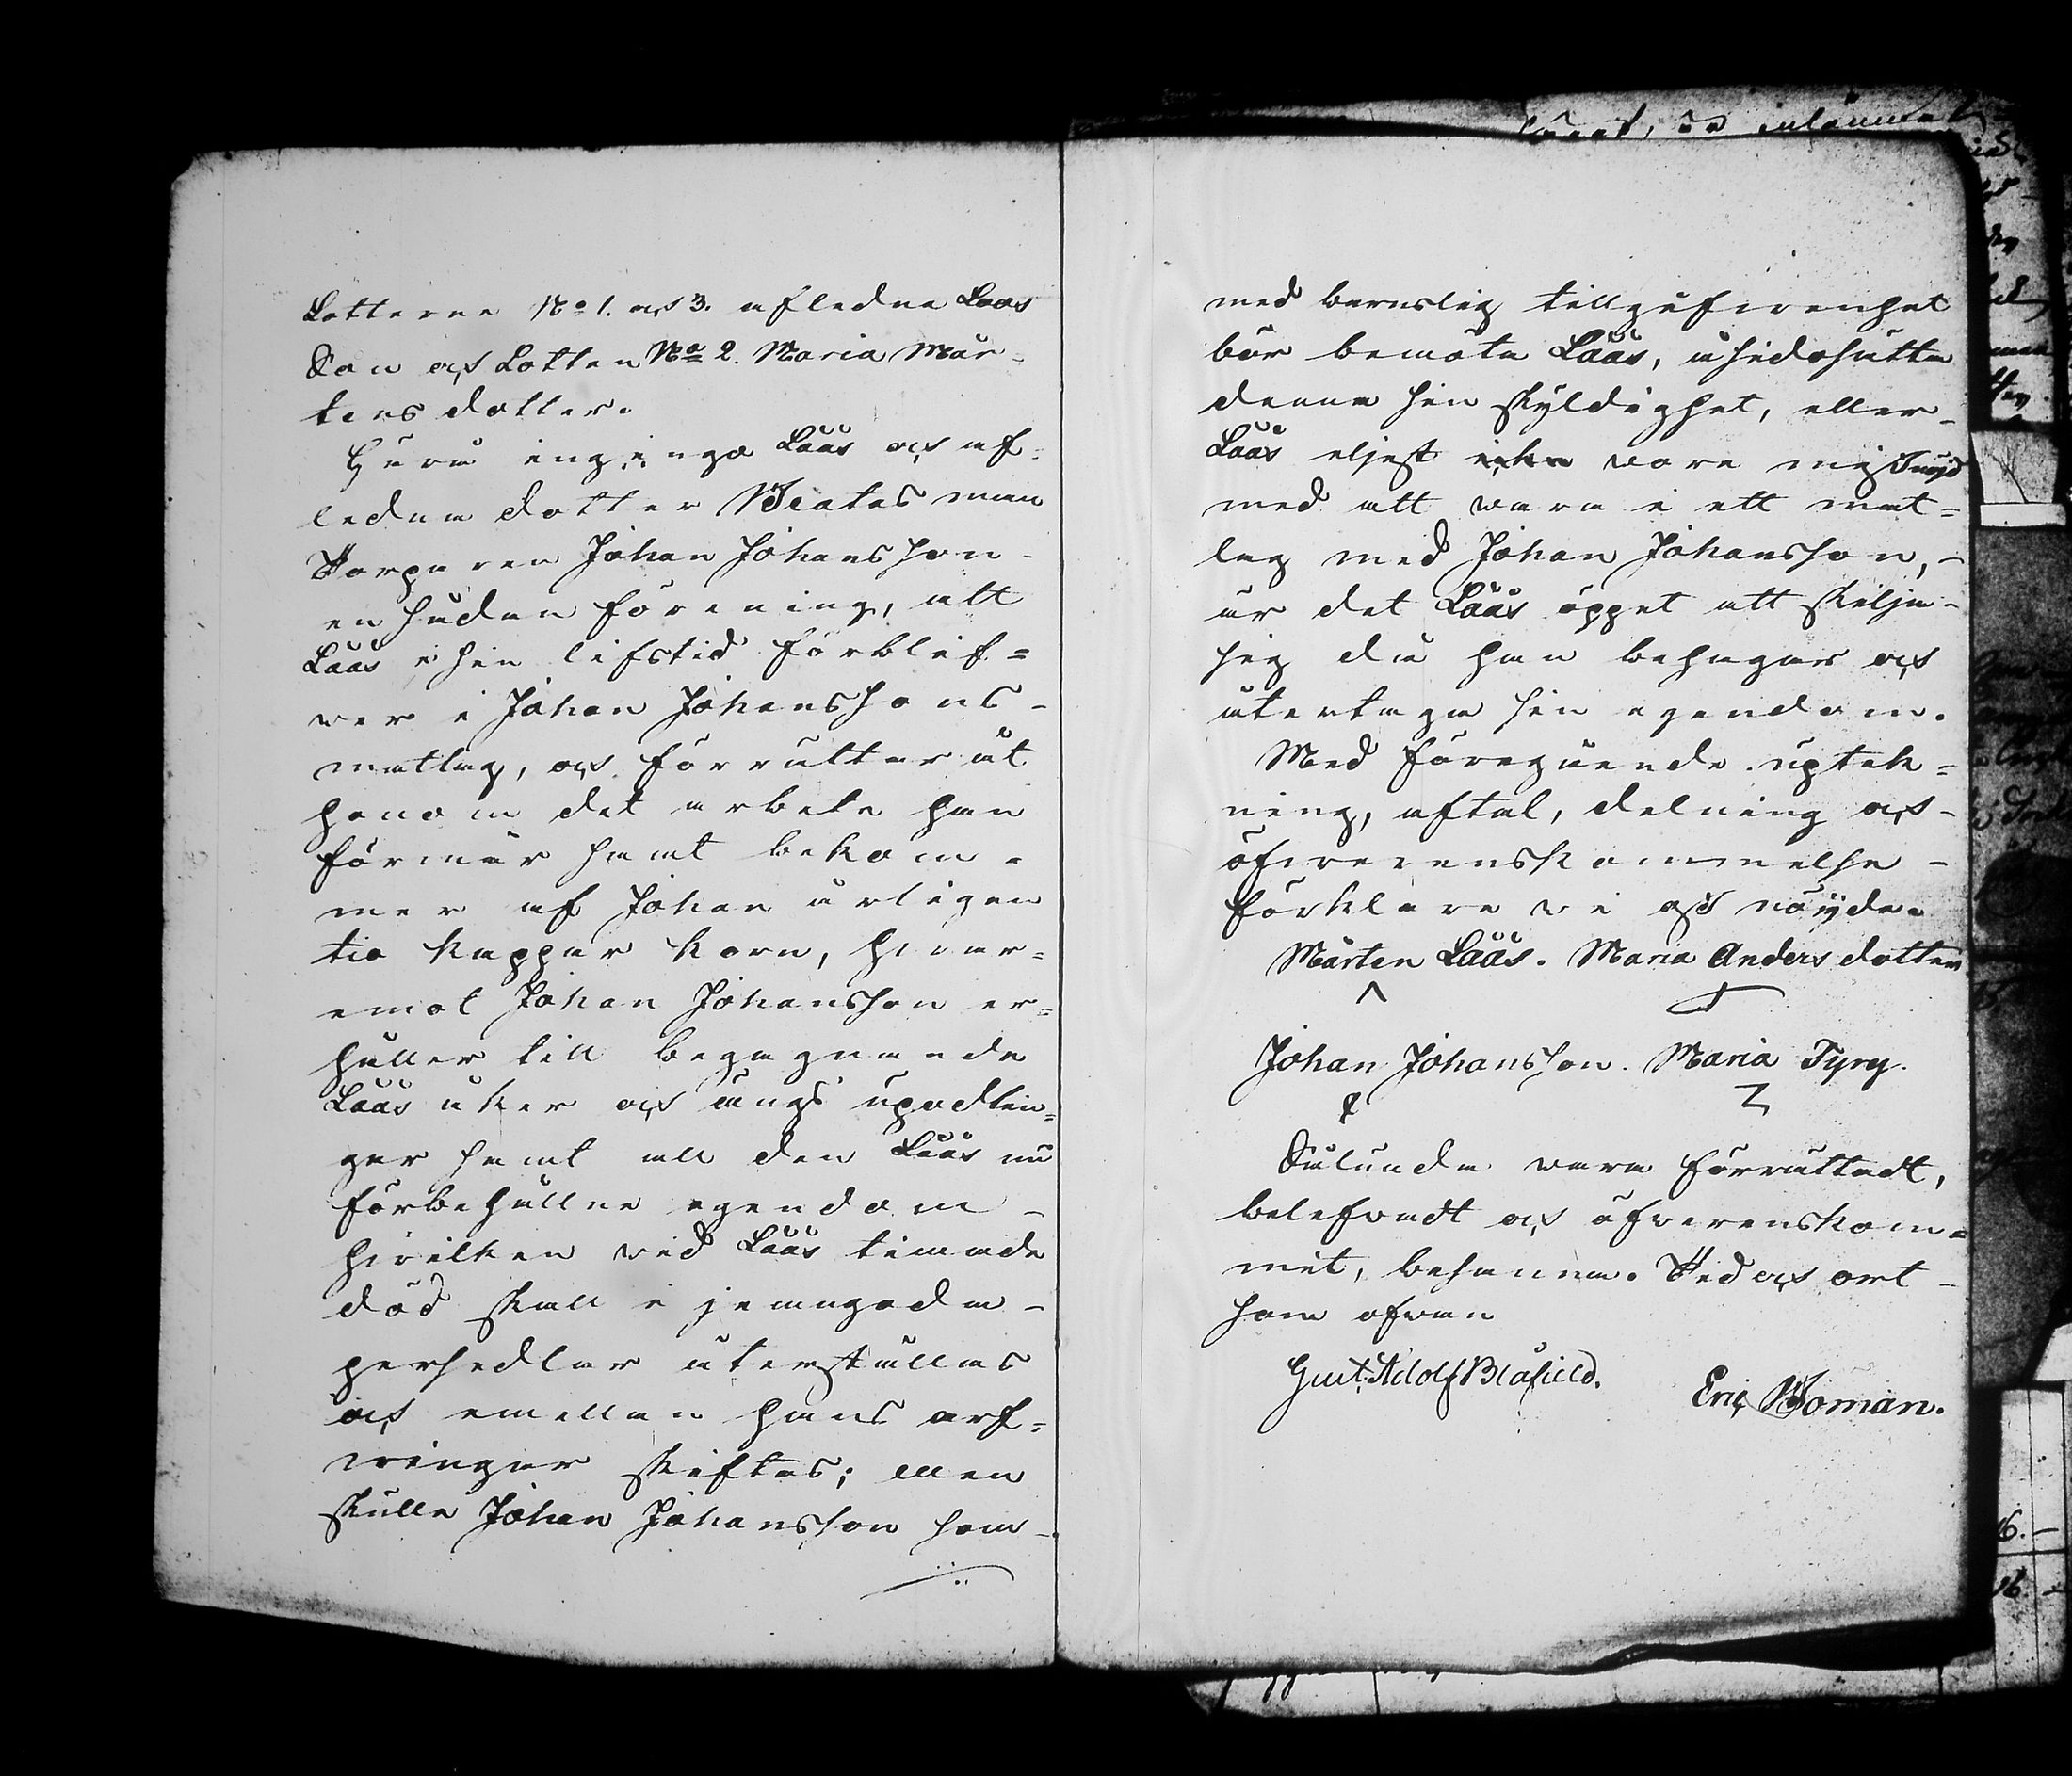 Lotterne No 1. och 3. afledne Laas
Son och Lotten No 2. Maria Mår-
tens dotter.
Huru ingingo Låås och af-
ledna dotter Beatas man
Torparen Johan Johansson
en sådan förening, att
Låås i sin lifstid förblif=
ver i Johan Johanssons
matlag, och förrättar åt
honom det arbete han
förmår samt bekom-
mer af Johan årligen
tio kappar korn, hvar=
emot Johan Johansson er=
håller till begagnande
Låås åker och ängs upodlin=
gar samt all den Låås nu
förbehållne egendom
hvilken vid Låås timade
död skall i jemngoda
persedlar återställas
och emellan hans arf=
vingar skiftas; Men
skulle Johan Johansson som
med barnslig tillgifvenhet
bör bemöta Låås, åsidosätta
denna sin skyldighet, eller
Låås eljest icke vore misnöjd
med att vara i ett mat=
lag med Johan Johansson,
är det Låås öppet att skilja
sig då han behagar och
återtaga sin egendom.
Med föregående uptek=
ning, aftal, delning och
öfverenskommelse
förklare vi oss nöÿde.
Mårten Låås. Maria Anders dotter
Johan Johansson. Maria Tyry.
Sålunda vara förrättadt,
belefvadt och öfverenskom=
mit, besanna. Tid och ort
som ofvan
Gust. Adolf Blåfield.
Eric Boman.